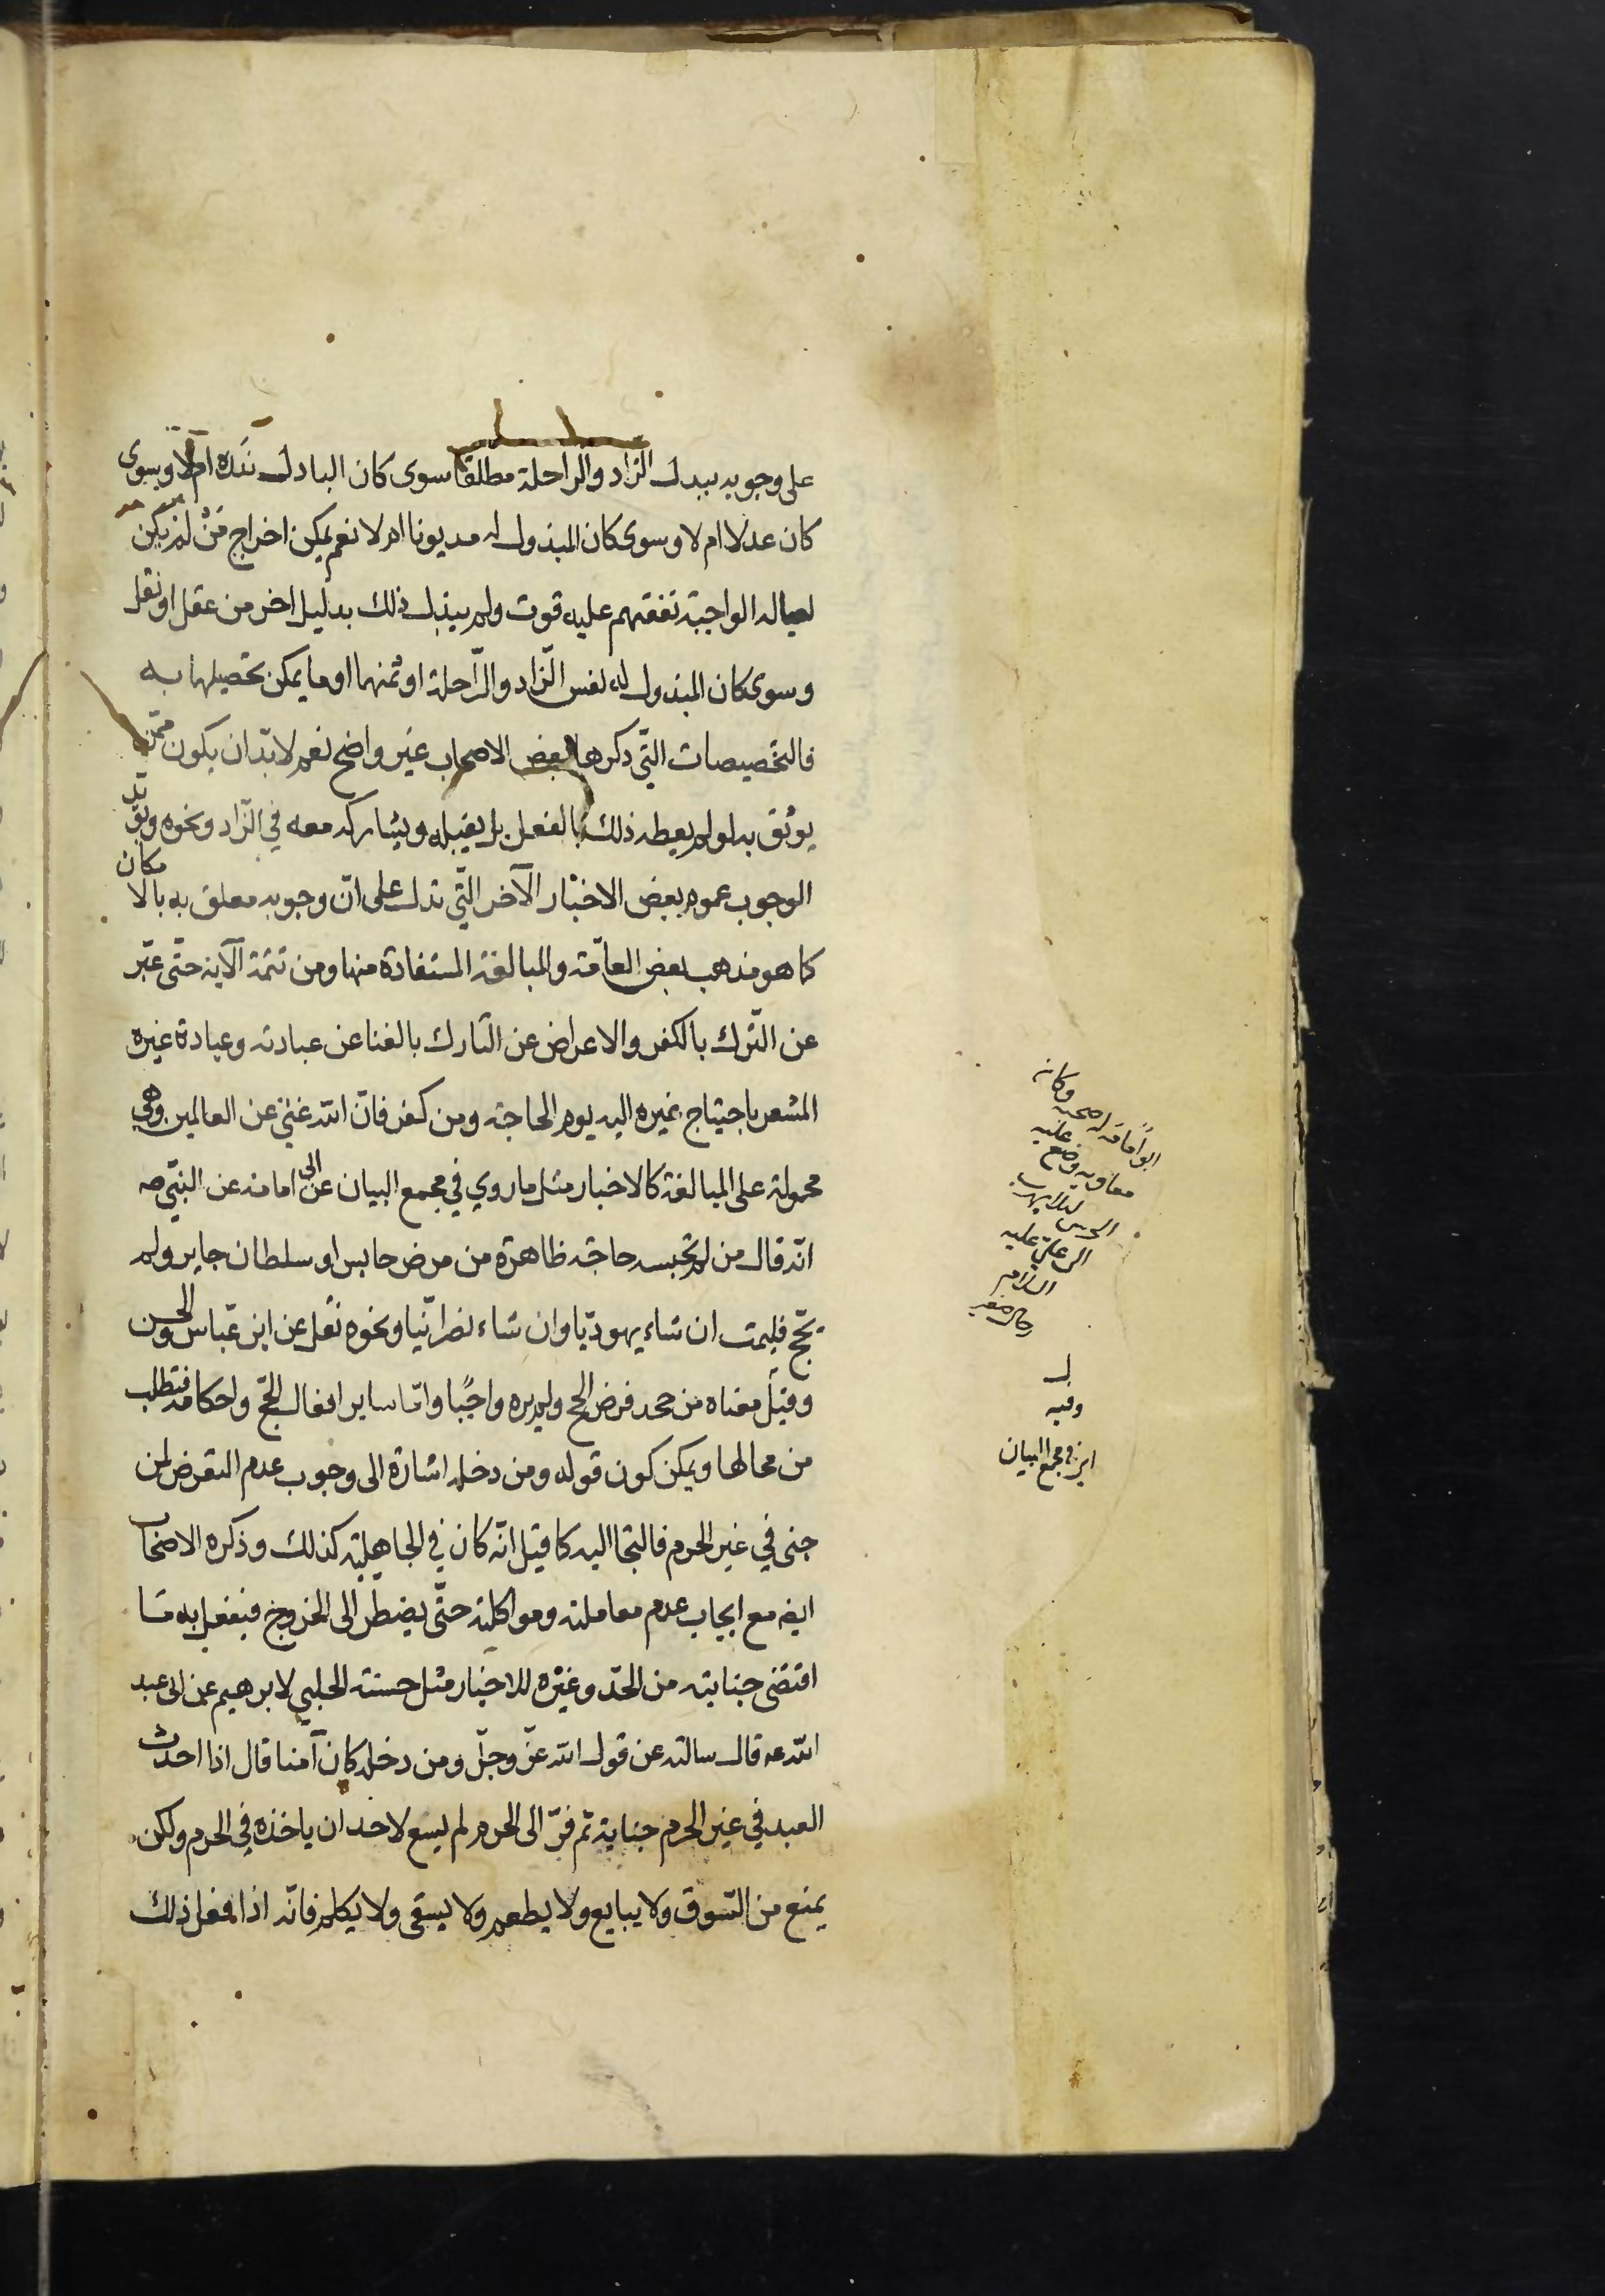 على وجوبه ببدل الزاد والراحلة مطلقا سوى كان الباذل نذره ام لا وسوى
كان عدلا ام لا وسوى كان المبذول له مديونا ام لا نعم يمكن اخراج من لم يكن
لعياله الواجبة نفقتهم عليه قوت ولم يبذل ذلك بدليل اخر من عقل او نقل
وسوى كان المبذول له نفس الزّاد والرّاحلة او ثمنهما او ما يمكن تحصيلها به
فالتخصيصات التّي ذكرها بعض الاصحاب غير واضح نعم لا بدّ ان يكون ممّن
يوثق به لو لم يعطه ذلك بالفعل بل يقبله ويشاركه معه في الزّاد ونحوه ويؤيّد
الوجوب عموم بعض الاخبار الآخر التّي تدل على انّ وجوبه معلق به بالامكان
كما هو مذهب بعض العامّة والمبالغة المستفادة منها ومن تتمة الآية حتّى عبّر
عن التّرك بالكفر والاعراض عن التارك بالغنا عن عبادته وعبادة غيره
المشعر باحتياج غيره اليه يوم الحاجة ومن كفر فانّ الله غنيّ عن العالمين وهي
محمولة على المبالغة كالاخبار مثل ما روي في مجمع البيان عن ابى امامة عن النبّي صه
انّه قال من لم تحبسه حاجة ظاهرة من مرض حابس او سلطان جاير ولم
يحّج فليمت ان شاء يهوديّا وان شاء نصرانّيا ونحوه نقل عن ابن عبّاس والحسن
وقيل معناه من جحد فرض الحج ولم يره واجبًا وامّا ساير افعال الحجّ واحكامه فتطلب
من محالها ويمكن كون قوله ومن دخله اشارة الى وجوب عدم التعرض لمن
جنى في غير الحرم فالتجا اليه كما قيل انّه كان في الجاهليّة كذلك وذكره الاصحاب
ايضه مع ايجاب عدم معاملته ومواكلته حتّى يضطر الى الخروج فيفعل به ما
اقتضى جنايته من الحدّ وغيره للاخبار مثل حسنة الحلبي لابرهيم عن ابى عبد
الله عه قال سالته عن قول الله عزّ وجلّ ومن دخله كان آمنا قال اذا احدث
العبد في غير الحرم جناية ثم فرّ الى الحرم لم يسع لاحد ان ياخذه في الحرم ولكن
يمنع من السّوق ولا يبايع ولا يطعم ولا يسقى ولا يكلم فانّه اذا فعل ذلك
وكان
ابو امامة له صحبة
معاويه وضع عليه
الحرس لئلا يهرب
الى علي عليه
السلام
رجال صغير
وفيه
في مجمع البيان